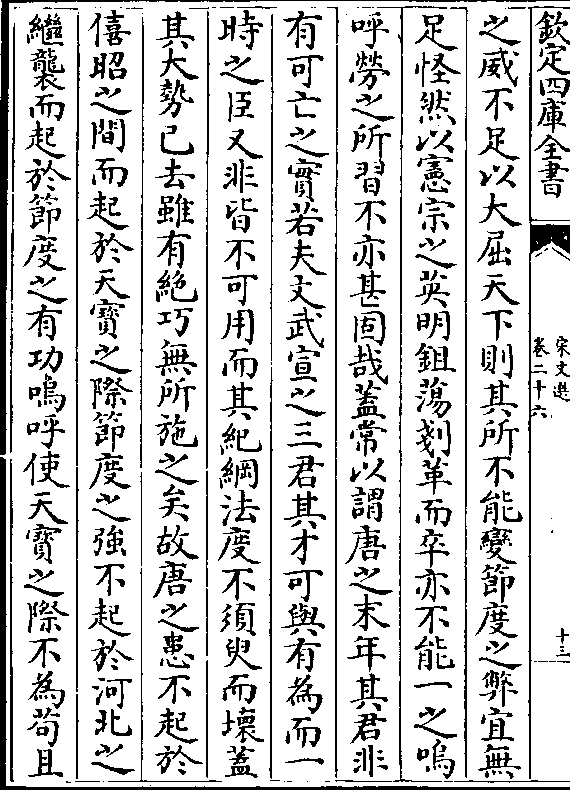 欽定四庫全書
宋文選
卷二十六
十三
之威不足以大屈天下則其所不能變節度之弊宜無
足怪然以憲宗之英明鉏蕩剗革而卒亦不能一之嗚
呼勞之所習不亦甚固哉蓋常以謂唐之末年其君非
有可亡之實若夫文武宣之三君其才可與有為而一
時之臣又非皆不可用而其紀綱法度不須臾而壞蓋
其大勢已去雖有絶巧無所施之矣故唐之患不起於
僖昭之間而起於天寶之際節度之強不起於河北之
繼襲而起於節度之有功嗚呼使天寶之際不為苟且